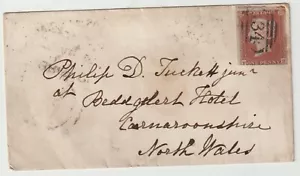 Philip D. Tuckett junr
at Beddgelert Hotel
Carnarvonshire
North Wales
34